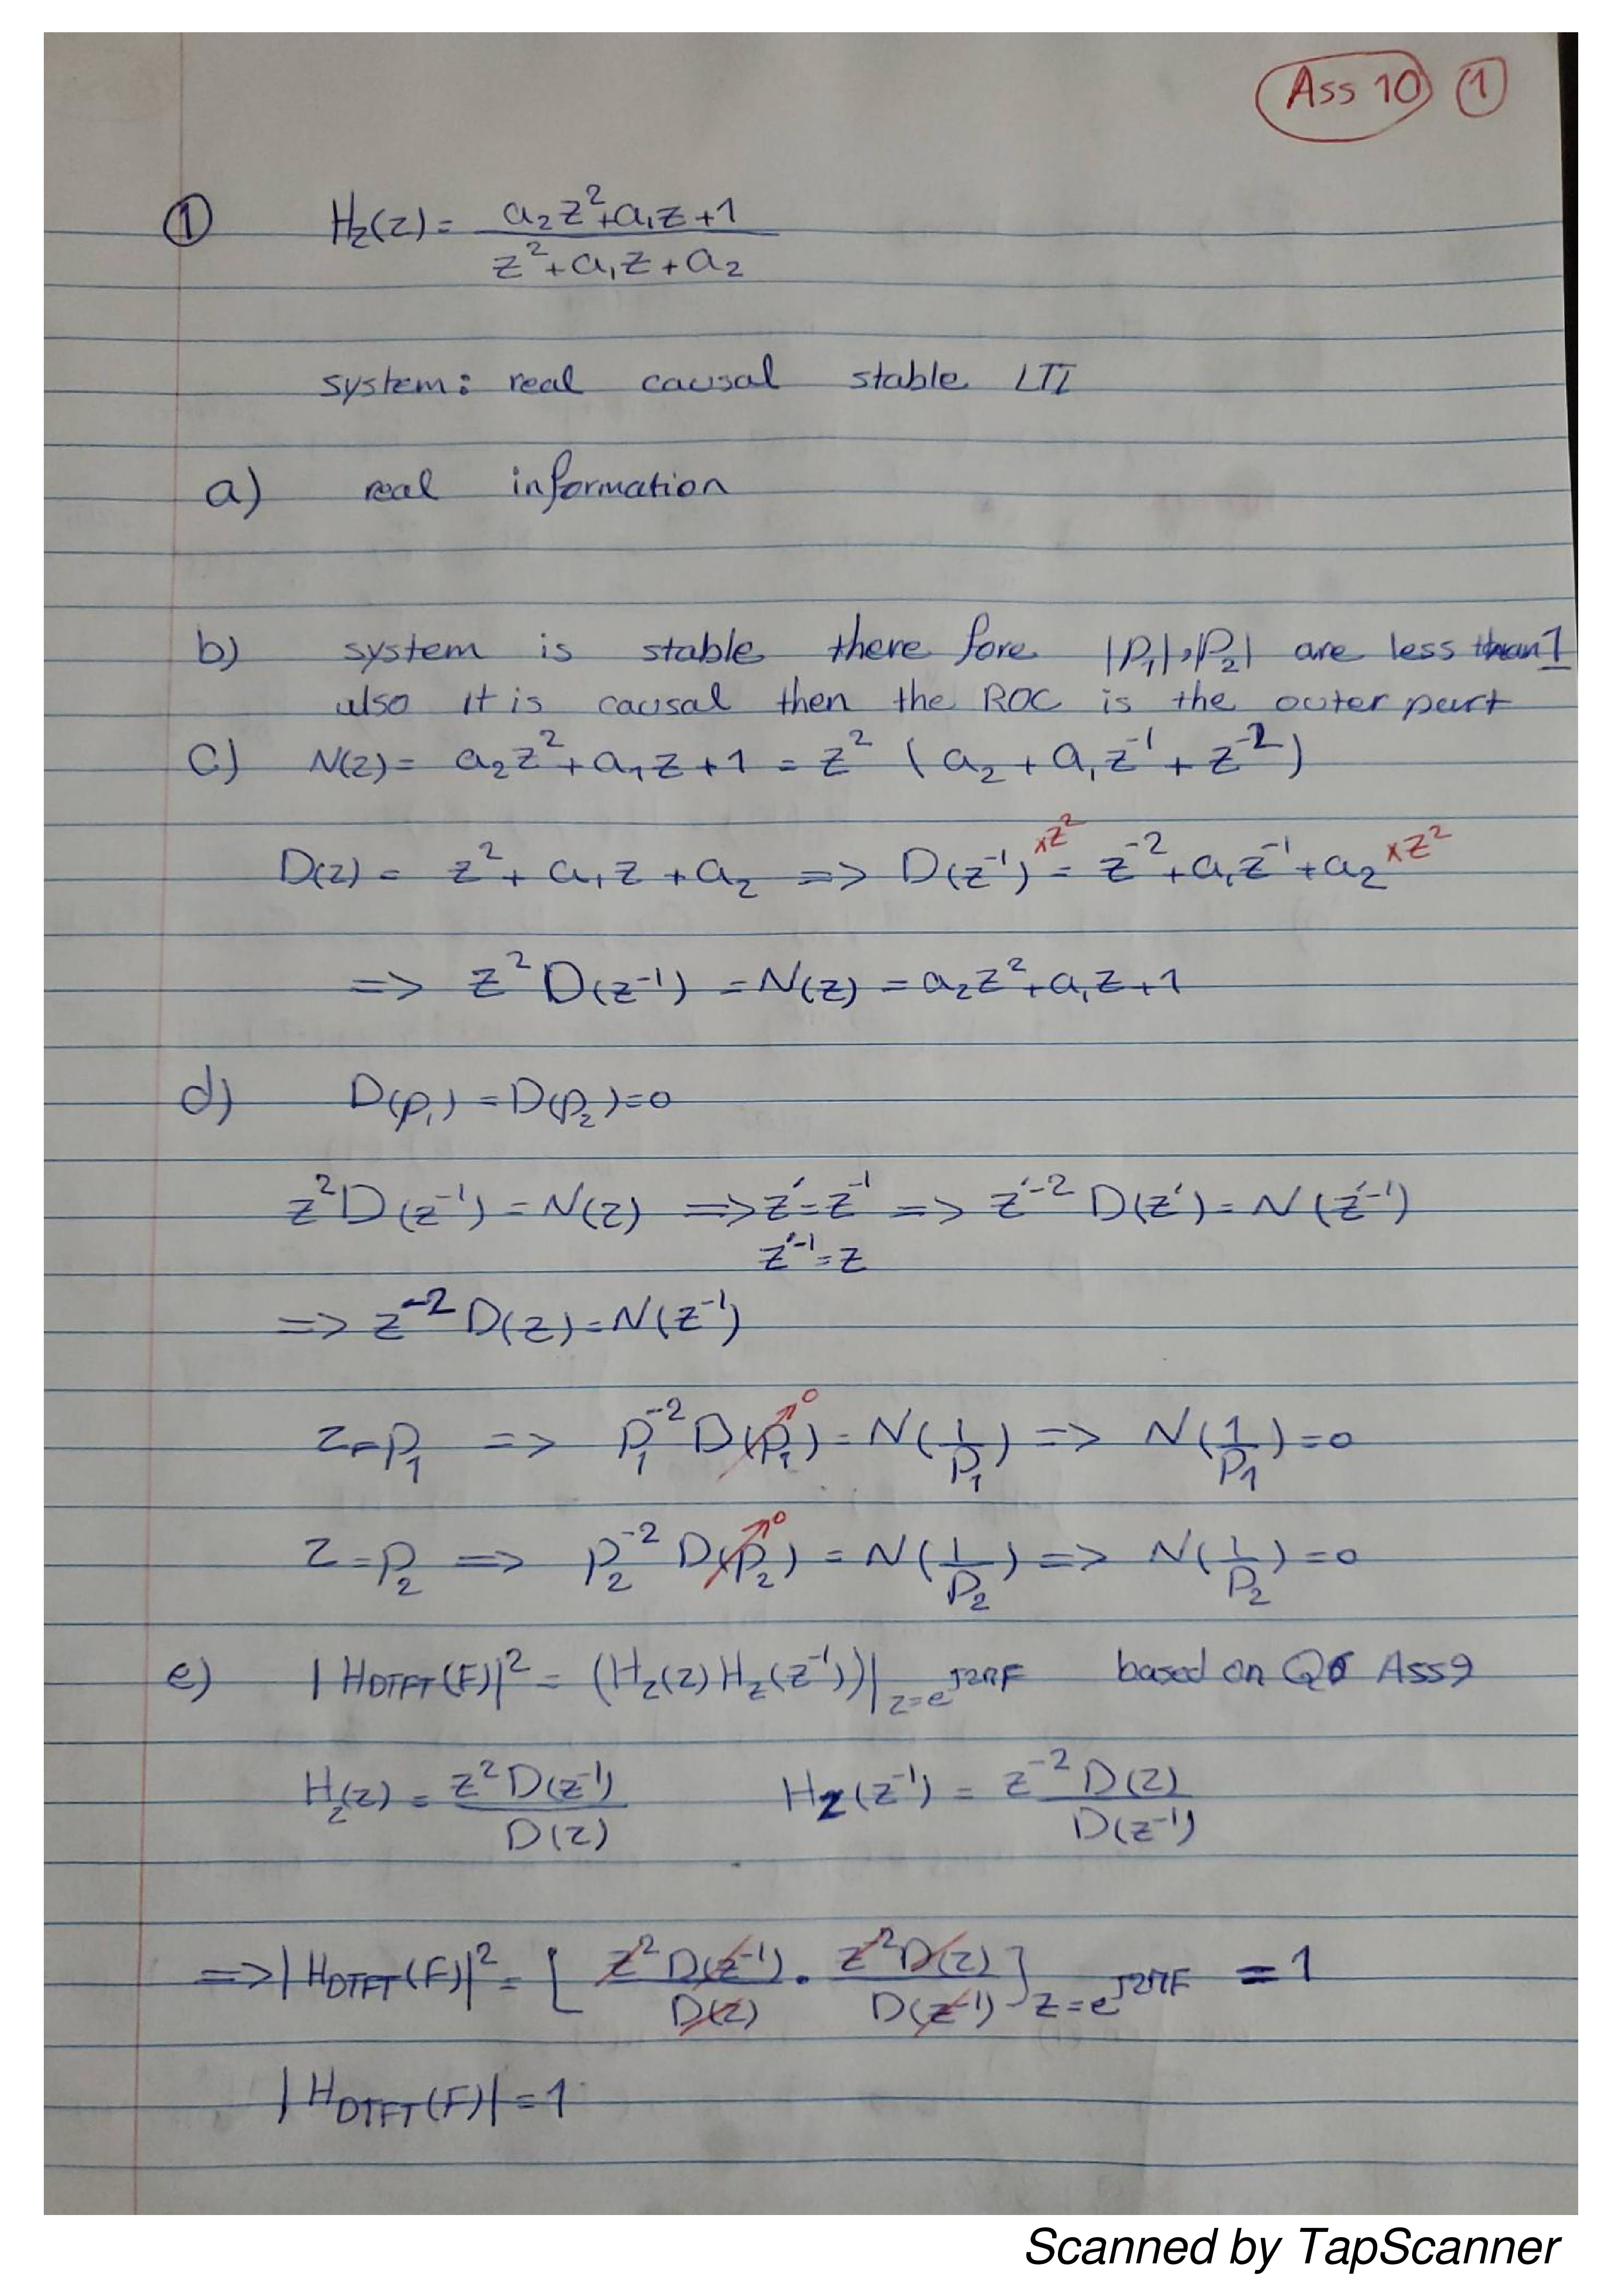 Ass 10 ①
① H_z(z) = (a₂z² + a₁z + 1) / (z² + a₁z + a₂)
system: real causal stable LTI
a) real information
b) system is stable there fore |P₁|,|P₂| are less than 1
also it is causal then the ROC is the outer part
c) N(z) = a₂z² + a₁z + 1 = z² (a₂ + a₁z⁻¹ + z⁻²)
D(z) = z² + a₁z + a₂ => D(z⁻¹) ×z² = z⁻² + a₁z⁻¹ + a₂ ×z²
=> z² D(z⁻¹) = N(z) = a₂z² + a₁z + 1
d) D(p₁) = D(p₂) = 0
z² D(z⁻¹) = N(z) => z' = z⁻¹ => z'⁻² D(z') = N(z'⁻¹)
z'⁻¹ = z
=> z⁻² D(z) = N(z⁻¹)
z = p₁ => p₁⁻² D(p₁) →0 = N(1/p₁) => N(1/p₁) = 0
z = p₂ => p₂⁻² D(p₂) →0 = N(1/p₂) => N(1/p₂) = 0
e) |H_DTFT(F)|² = (H_z(z) H_z(z⁻¹))|_z=e^J2πF based on Q6 Ass9
H_z(z) = z² D(z⁻¹) / D(z) H_z(z⁻¹) = z⁻² D(z) / D(z⁻¹)
=> |H_DTFT(F)|² = [ z² D(z⁻¹) / D(z) . z⁻² D(z) / D(z⁻¹) ]_z=e^J2πF = 1
|H_DTFT(F)| = 1
Scanned by TapScanner